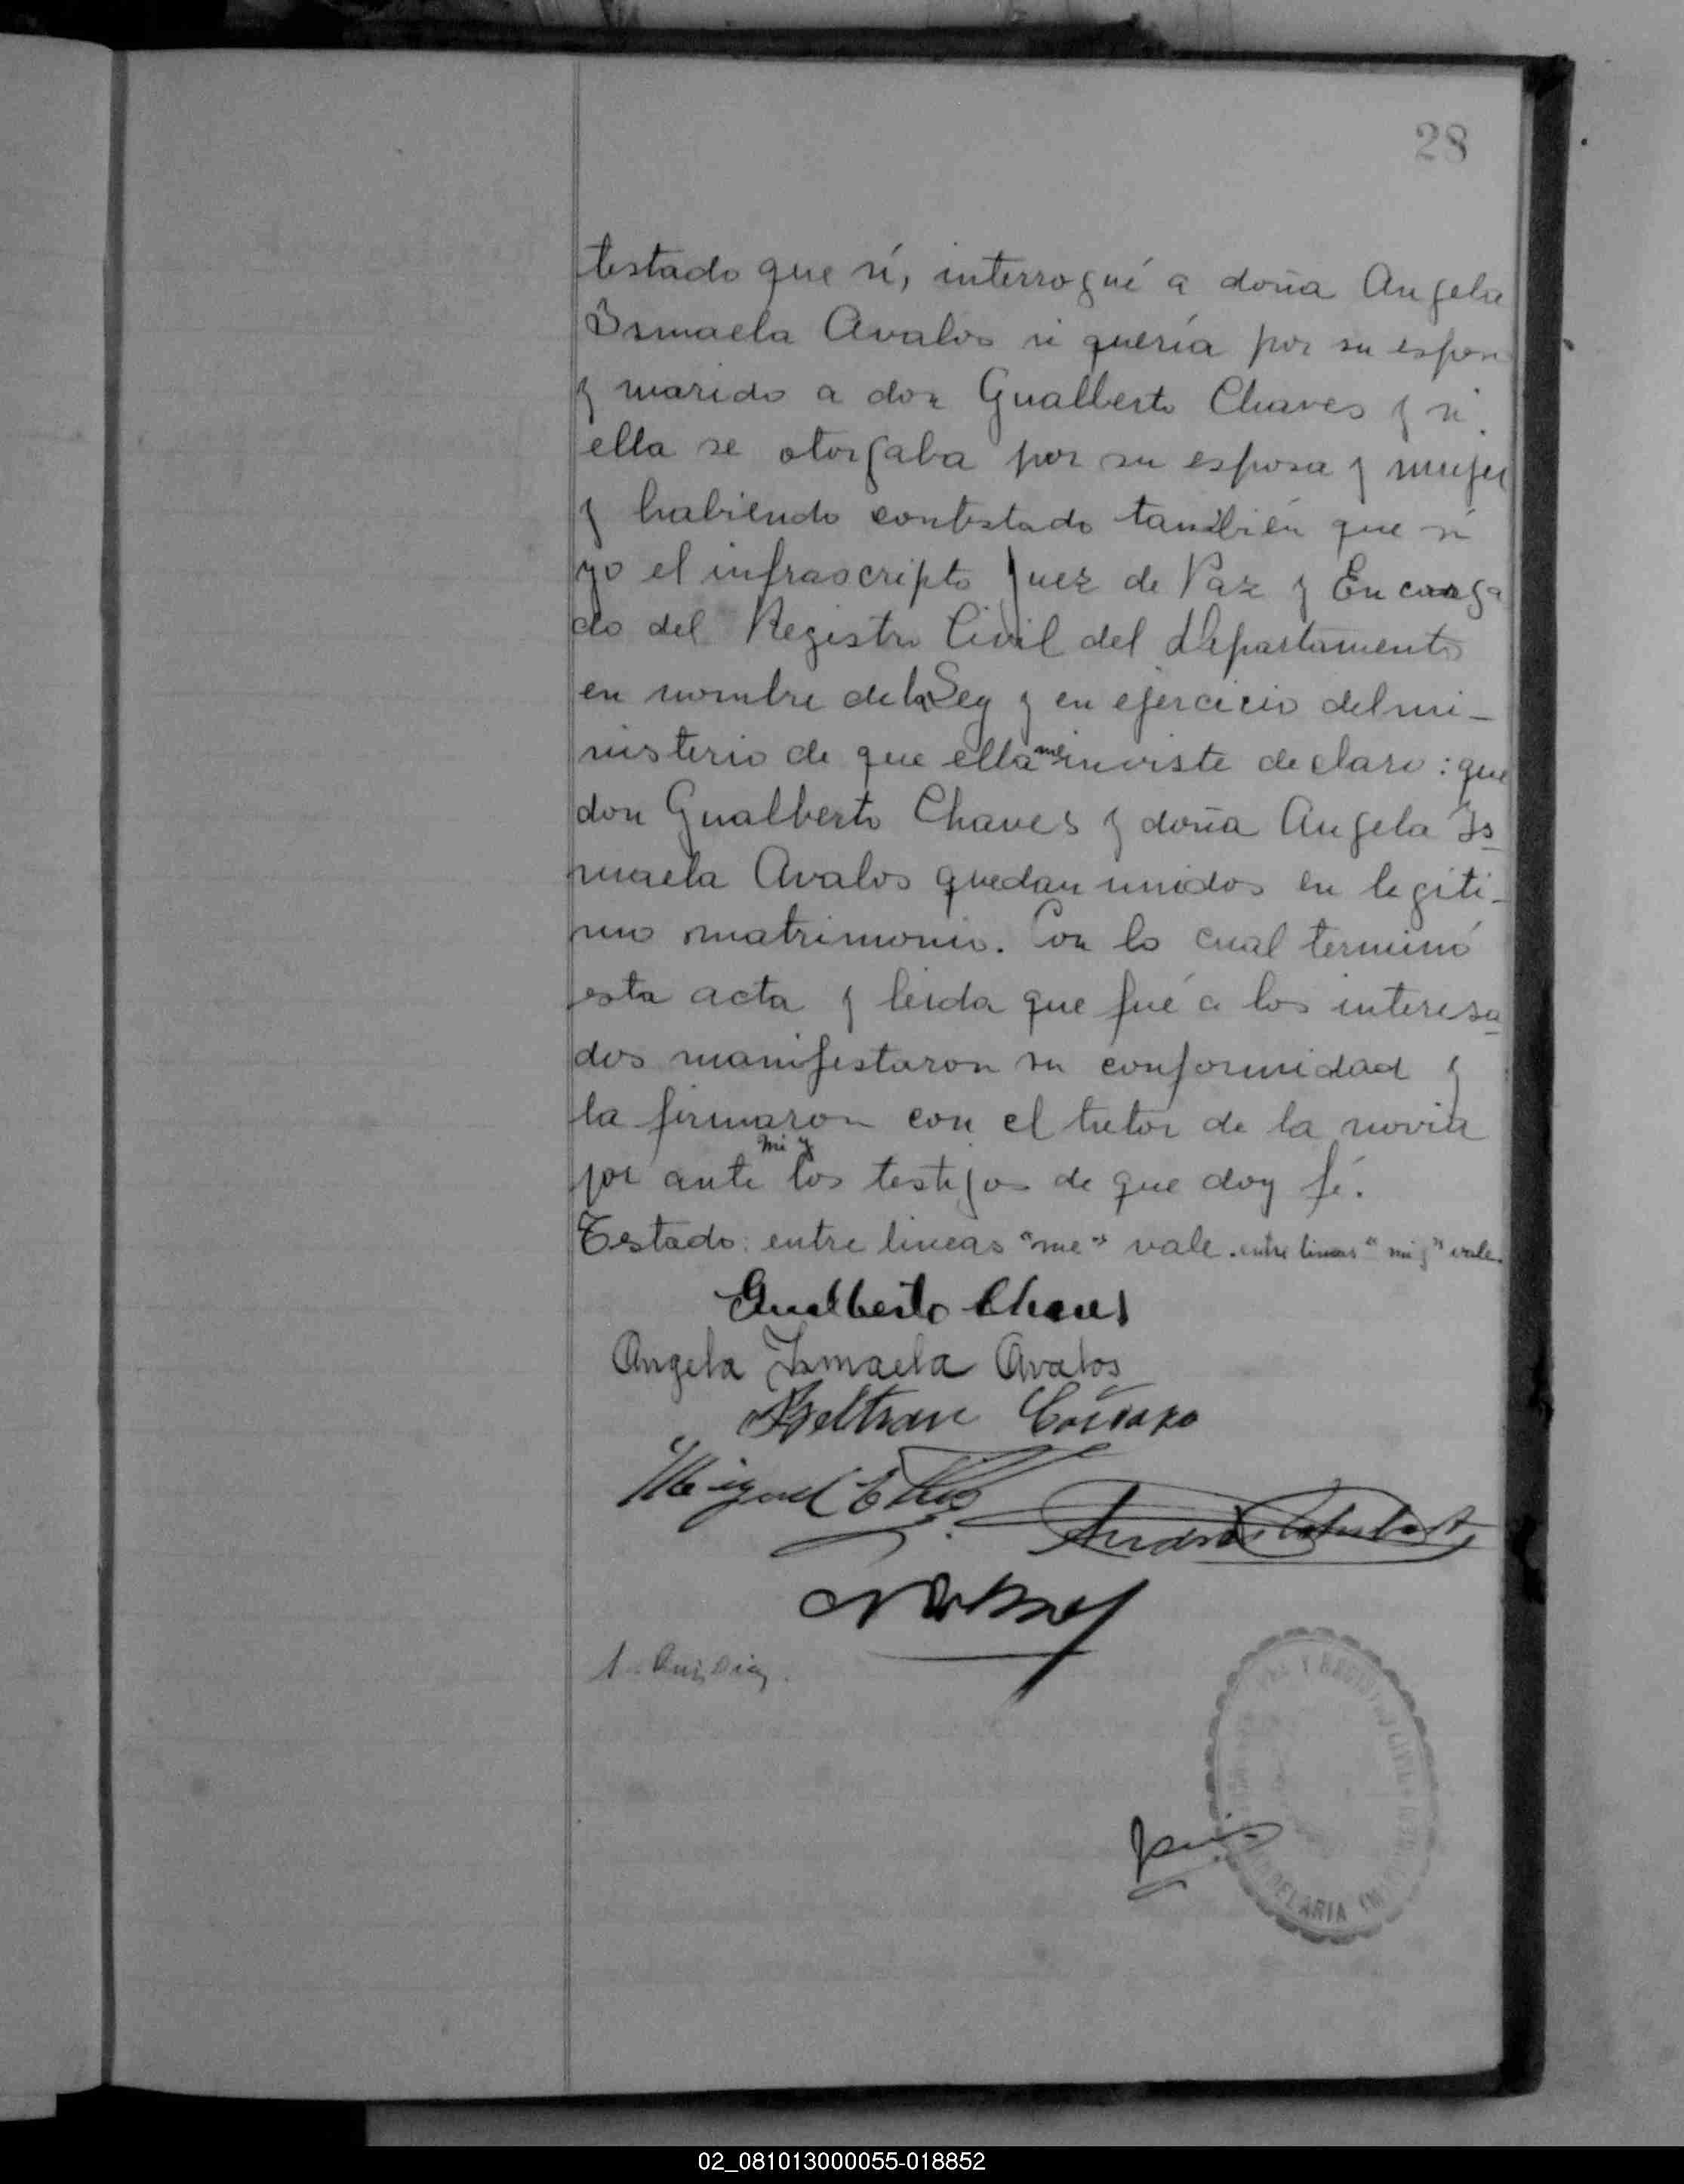 28
testado que sí, interrogué a doña Angela
Ismaela Avalos si quería por su espos
y marido a don Gualberto Chaves y si
ella se otorgaba por su esposa y mujer
y habiendo contestado también que sí
yo el infrascripto Juez de Paz y Encarga
do del Registro Civil del Departamento
en nombre de la Ley y en ejercicio del mi-
nisterio de que ella me inviste declaro: que
don Gualberto Chaves y doña Angela Is
maela Avalos quedan unidos en legiti-
mo matrimonio. Con lo cual terminó
esta acta y leida que fué a los interesa
dos manifestaron su conformidad y
la firmaron con el tutor de la novia
por ante mi y los testigos de que doy fé.
Testado: entre lineas "me" vale. entre lineas "mi y" vale.
Gualberto Chaves
Angela Ismaela Avalos
Beltran
Miguel
Andrés
PAZ Y REGISTRO CIVIL
DELARIA
02_081013000055-018852